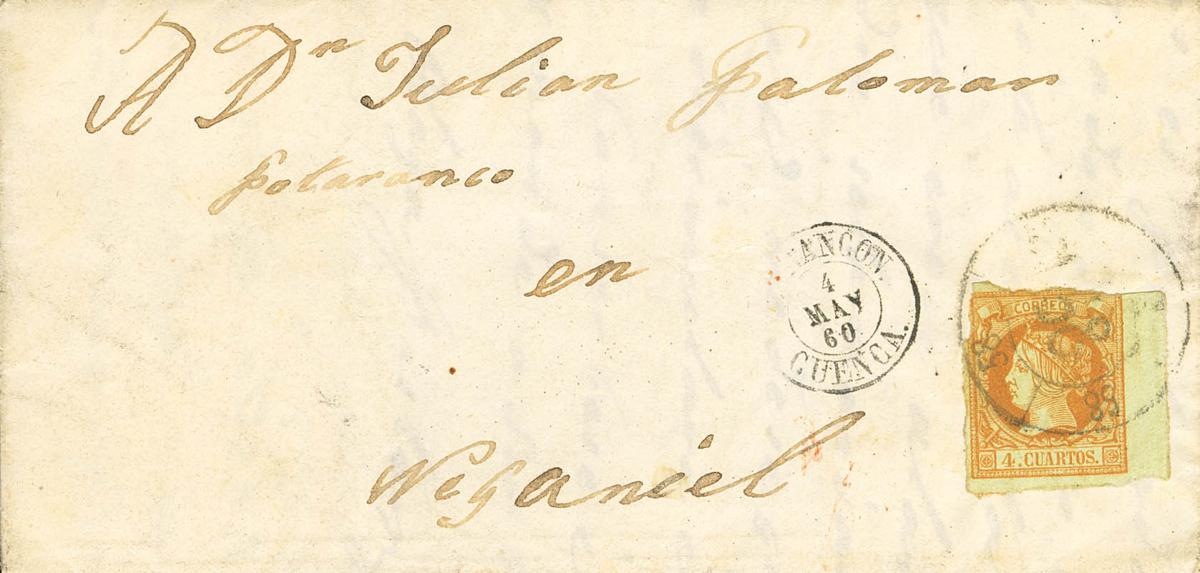 A Dn Julian Palomar
Potaranco
en
Weganiel
ANCON.
4
MAY
60
CUENCA.
CORREOS
4. CUARTOS.